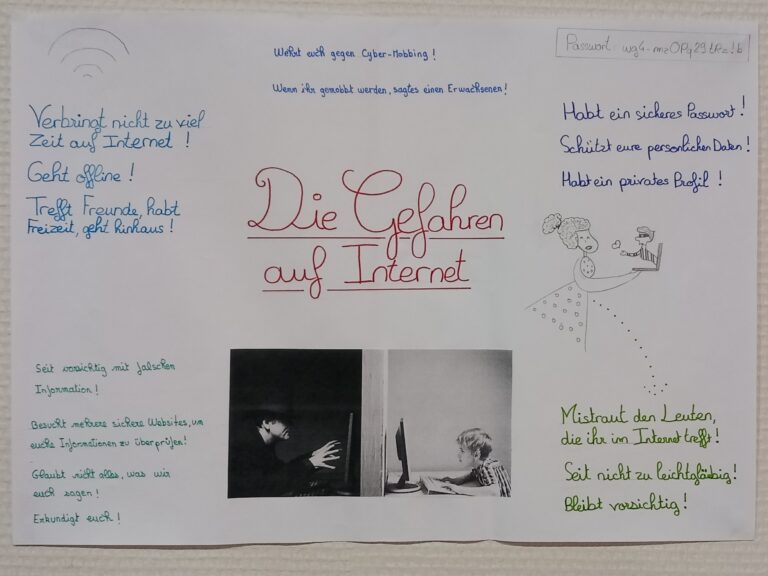 Wehrt euch gegen Cyber-Mobbing !
Wenn ihr gemobbt werden, sagtes einen Erwachsenen !
Passwort:
Verbringt nicht zu viel
Zeit auf Internet !
Geht offline !
Trefft Freunde, habt
Freizeit, geht hinhaus !
Habt ein sicheres Passwort !
Schützt eure persönlichen Daten !
Habt ein privates Profil !
Die Gefahren
auf Internet
Seit vorsichtig mit falschen
Information !
Besucht mehrere sichere Websites, um
euche Informationen zu überprüfen !
Glaubt nicht alles, was wir
euch sagen !
Erkundigt euch !
Mistraut den Leuten,
die ihr im Internet trefft !
Seit nicht zu leichtgläubig !
Bleibt vorsichtig !